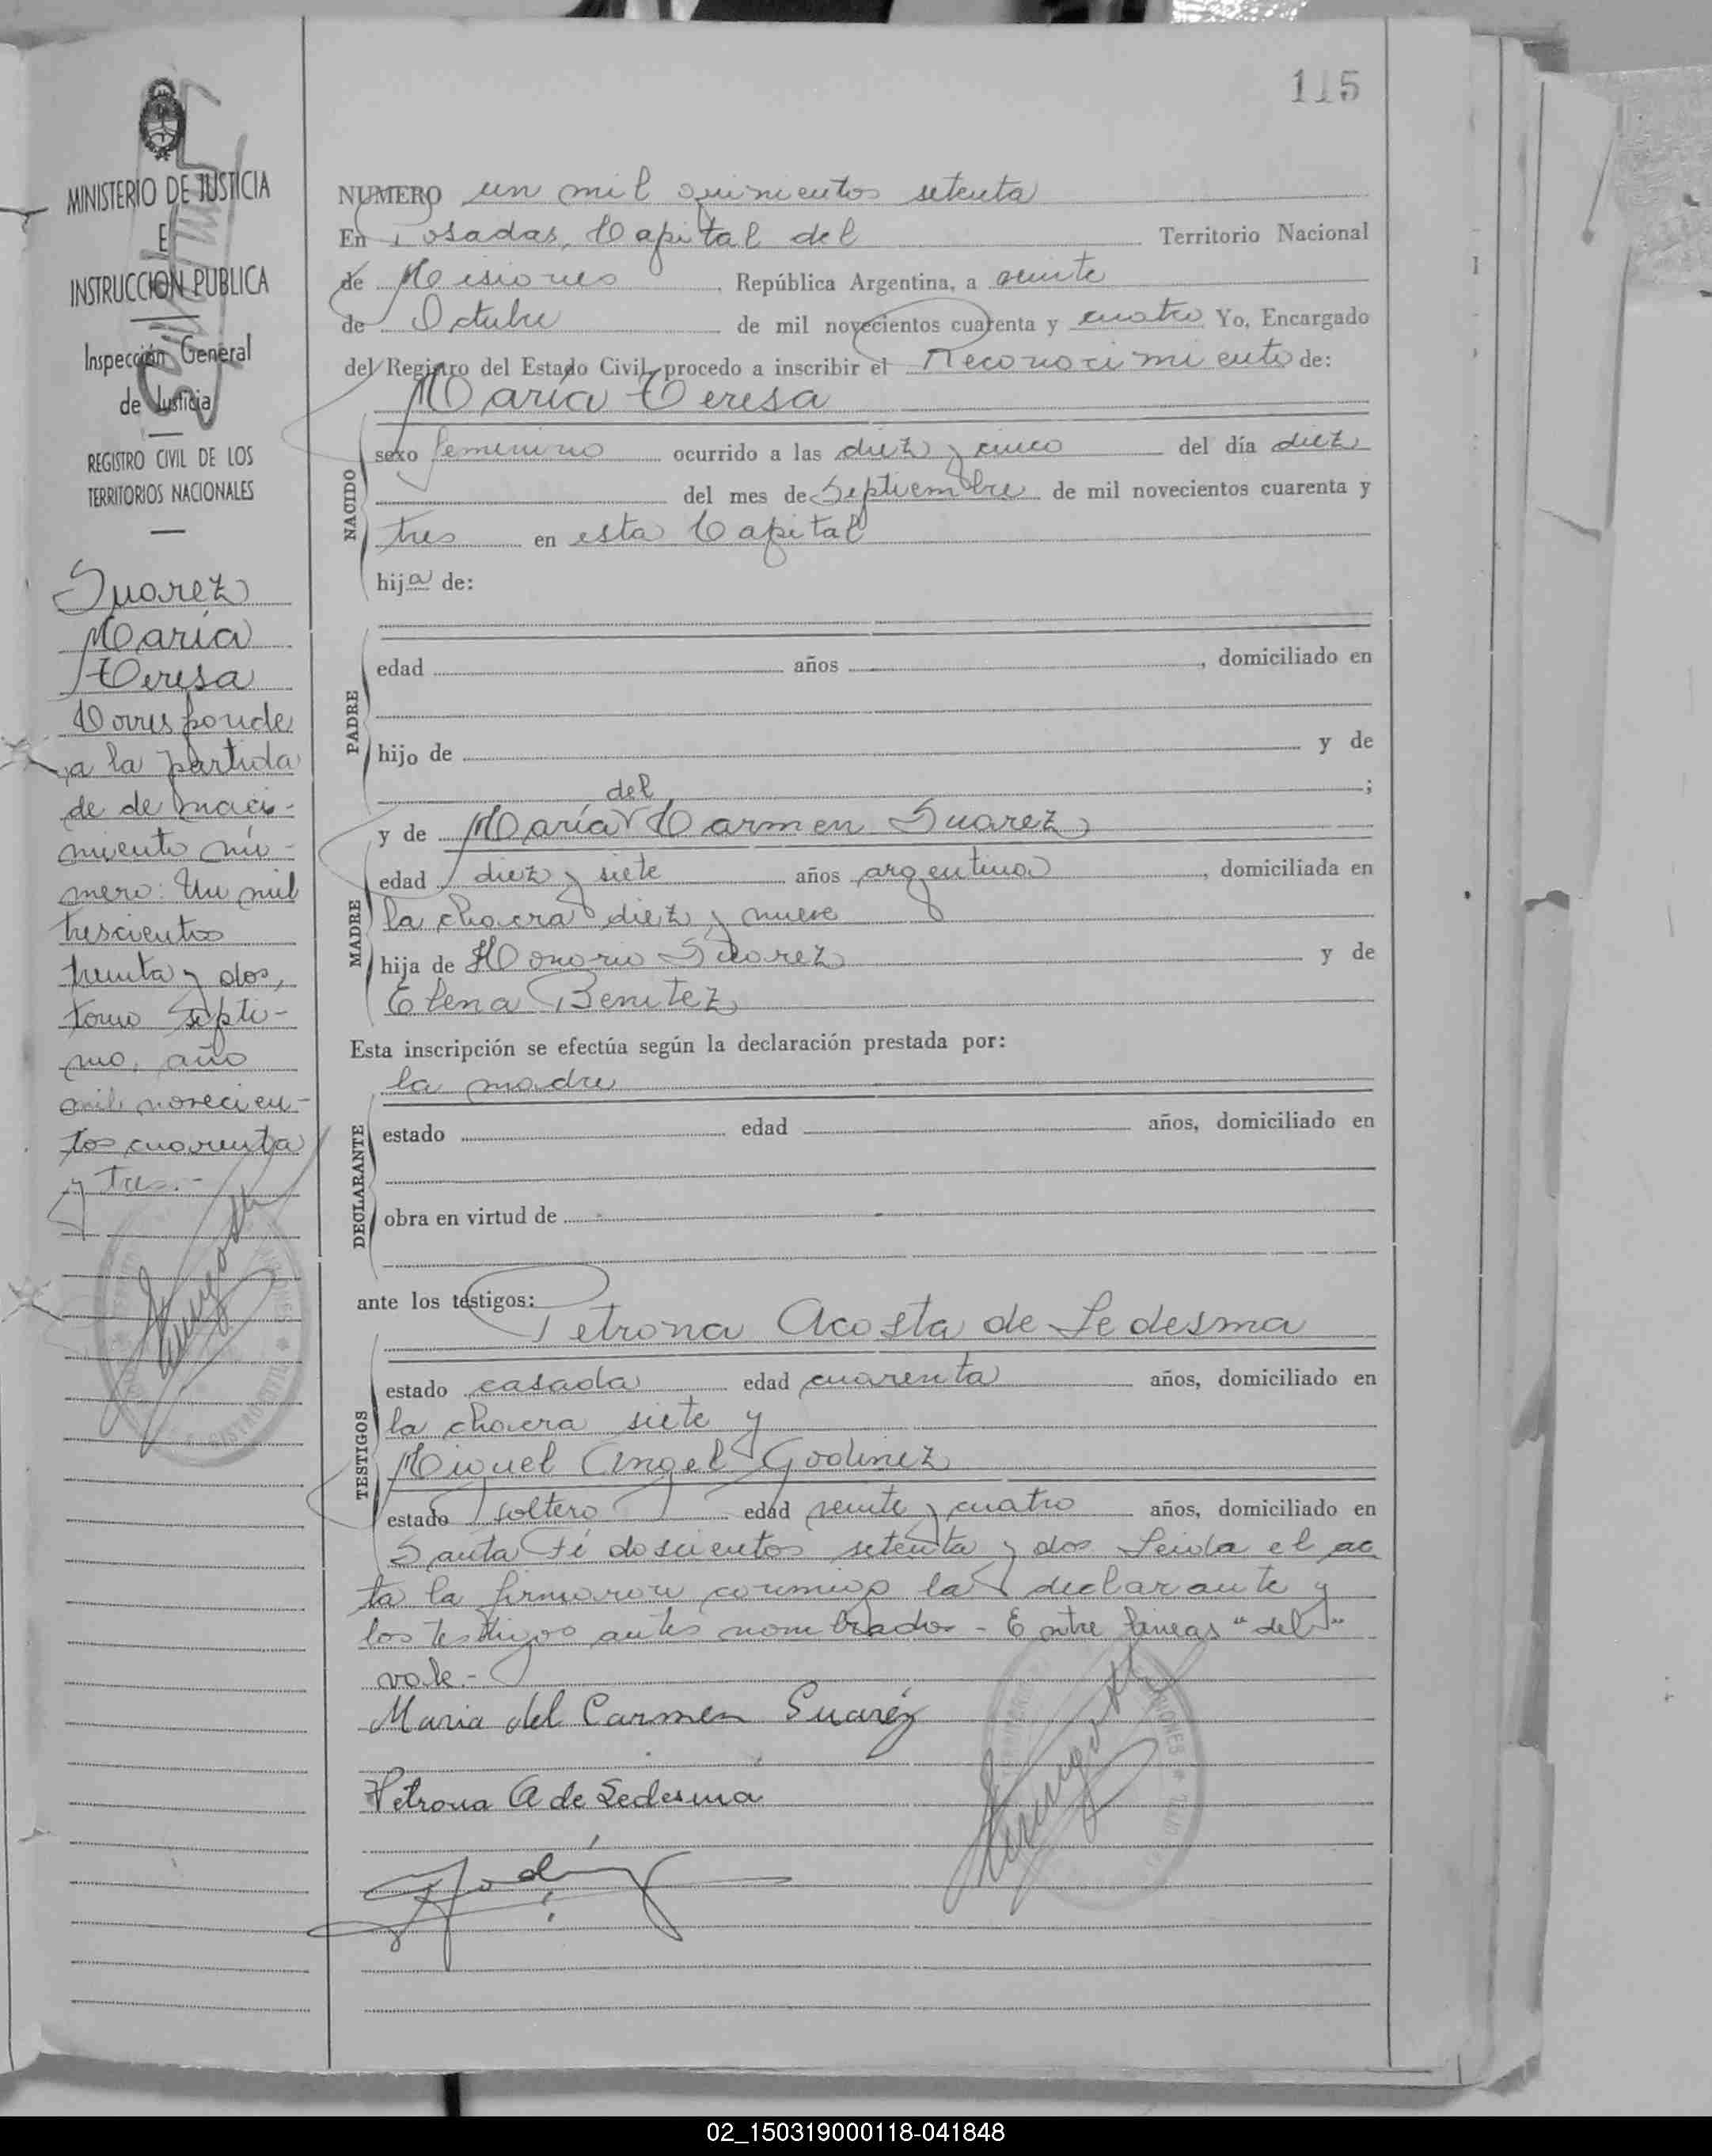 115
MINISTERIO DE JUSTICIA
E
INSTRUCCION PUBLICA
Inspección General
de Justicia
REGISTRO CIVIL DE LOS
TERRITORIOS NACIONALES
Suarez
María
Teresa
Corresponde
a la partida
de de naci-
miento nú-
mero: Un mil
trescientos
treinta y dos,
tomo septi-
mo, año
mil novecien-
tos cuarenta
y tres.-
NUMERO un mil quinientos setenta
En Posadas, Capital del Territorio Nacional
de Misiones, República Argentina, a veinte
de Octubre de mil novecientos cuarenta y cuatro Yo, Encargado
del Registro del Estado Civil, procedo a inscribir el Reconocimiento de:
María Teresa
NACIDO
sexo femenino ocurrido a las diez y cinco del día diez
del mes de Septiembre de mil novecientos cuarenta y
tres en esta Capital
hija de:
PADRE
edad años , domiciliado en
hijo de y de
;
del
y de María Carmen Suarez
MADRE
edad diez y siete años argentina, domiciliada en
la chacra diez y nueve
hija de Honorio Suarez y de
Elena Benitez
Esta inscripción se efectúa según la declaración prestada por:
la madre
DECLARANTE
estado edad años, domiciliado en
obra en virtud de
ante los testigos:
Petrona Acosta de Ledesma
TESTIGOS
estado casada edad cuarenta años, domiciliado en
la chacra siete y
Miguel Angel Godinez
estado soltero edad veinte y cuatro años, domiciliado en
Santa Fé doscientos setenta y dos. Leida el ac
ta la firmaron conmigo la declarante y
los testigos antes nombrados - Entre lineas "del"
vale.-
Maria del Carmen Suaréz
Petrona A de Ledesma
02_150319000118-041848